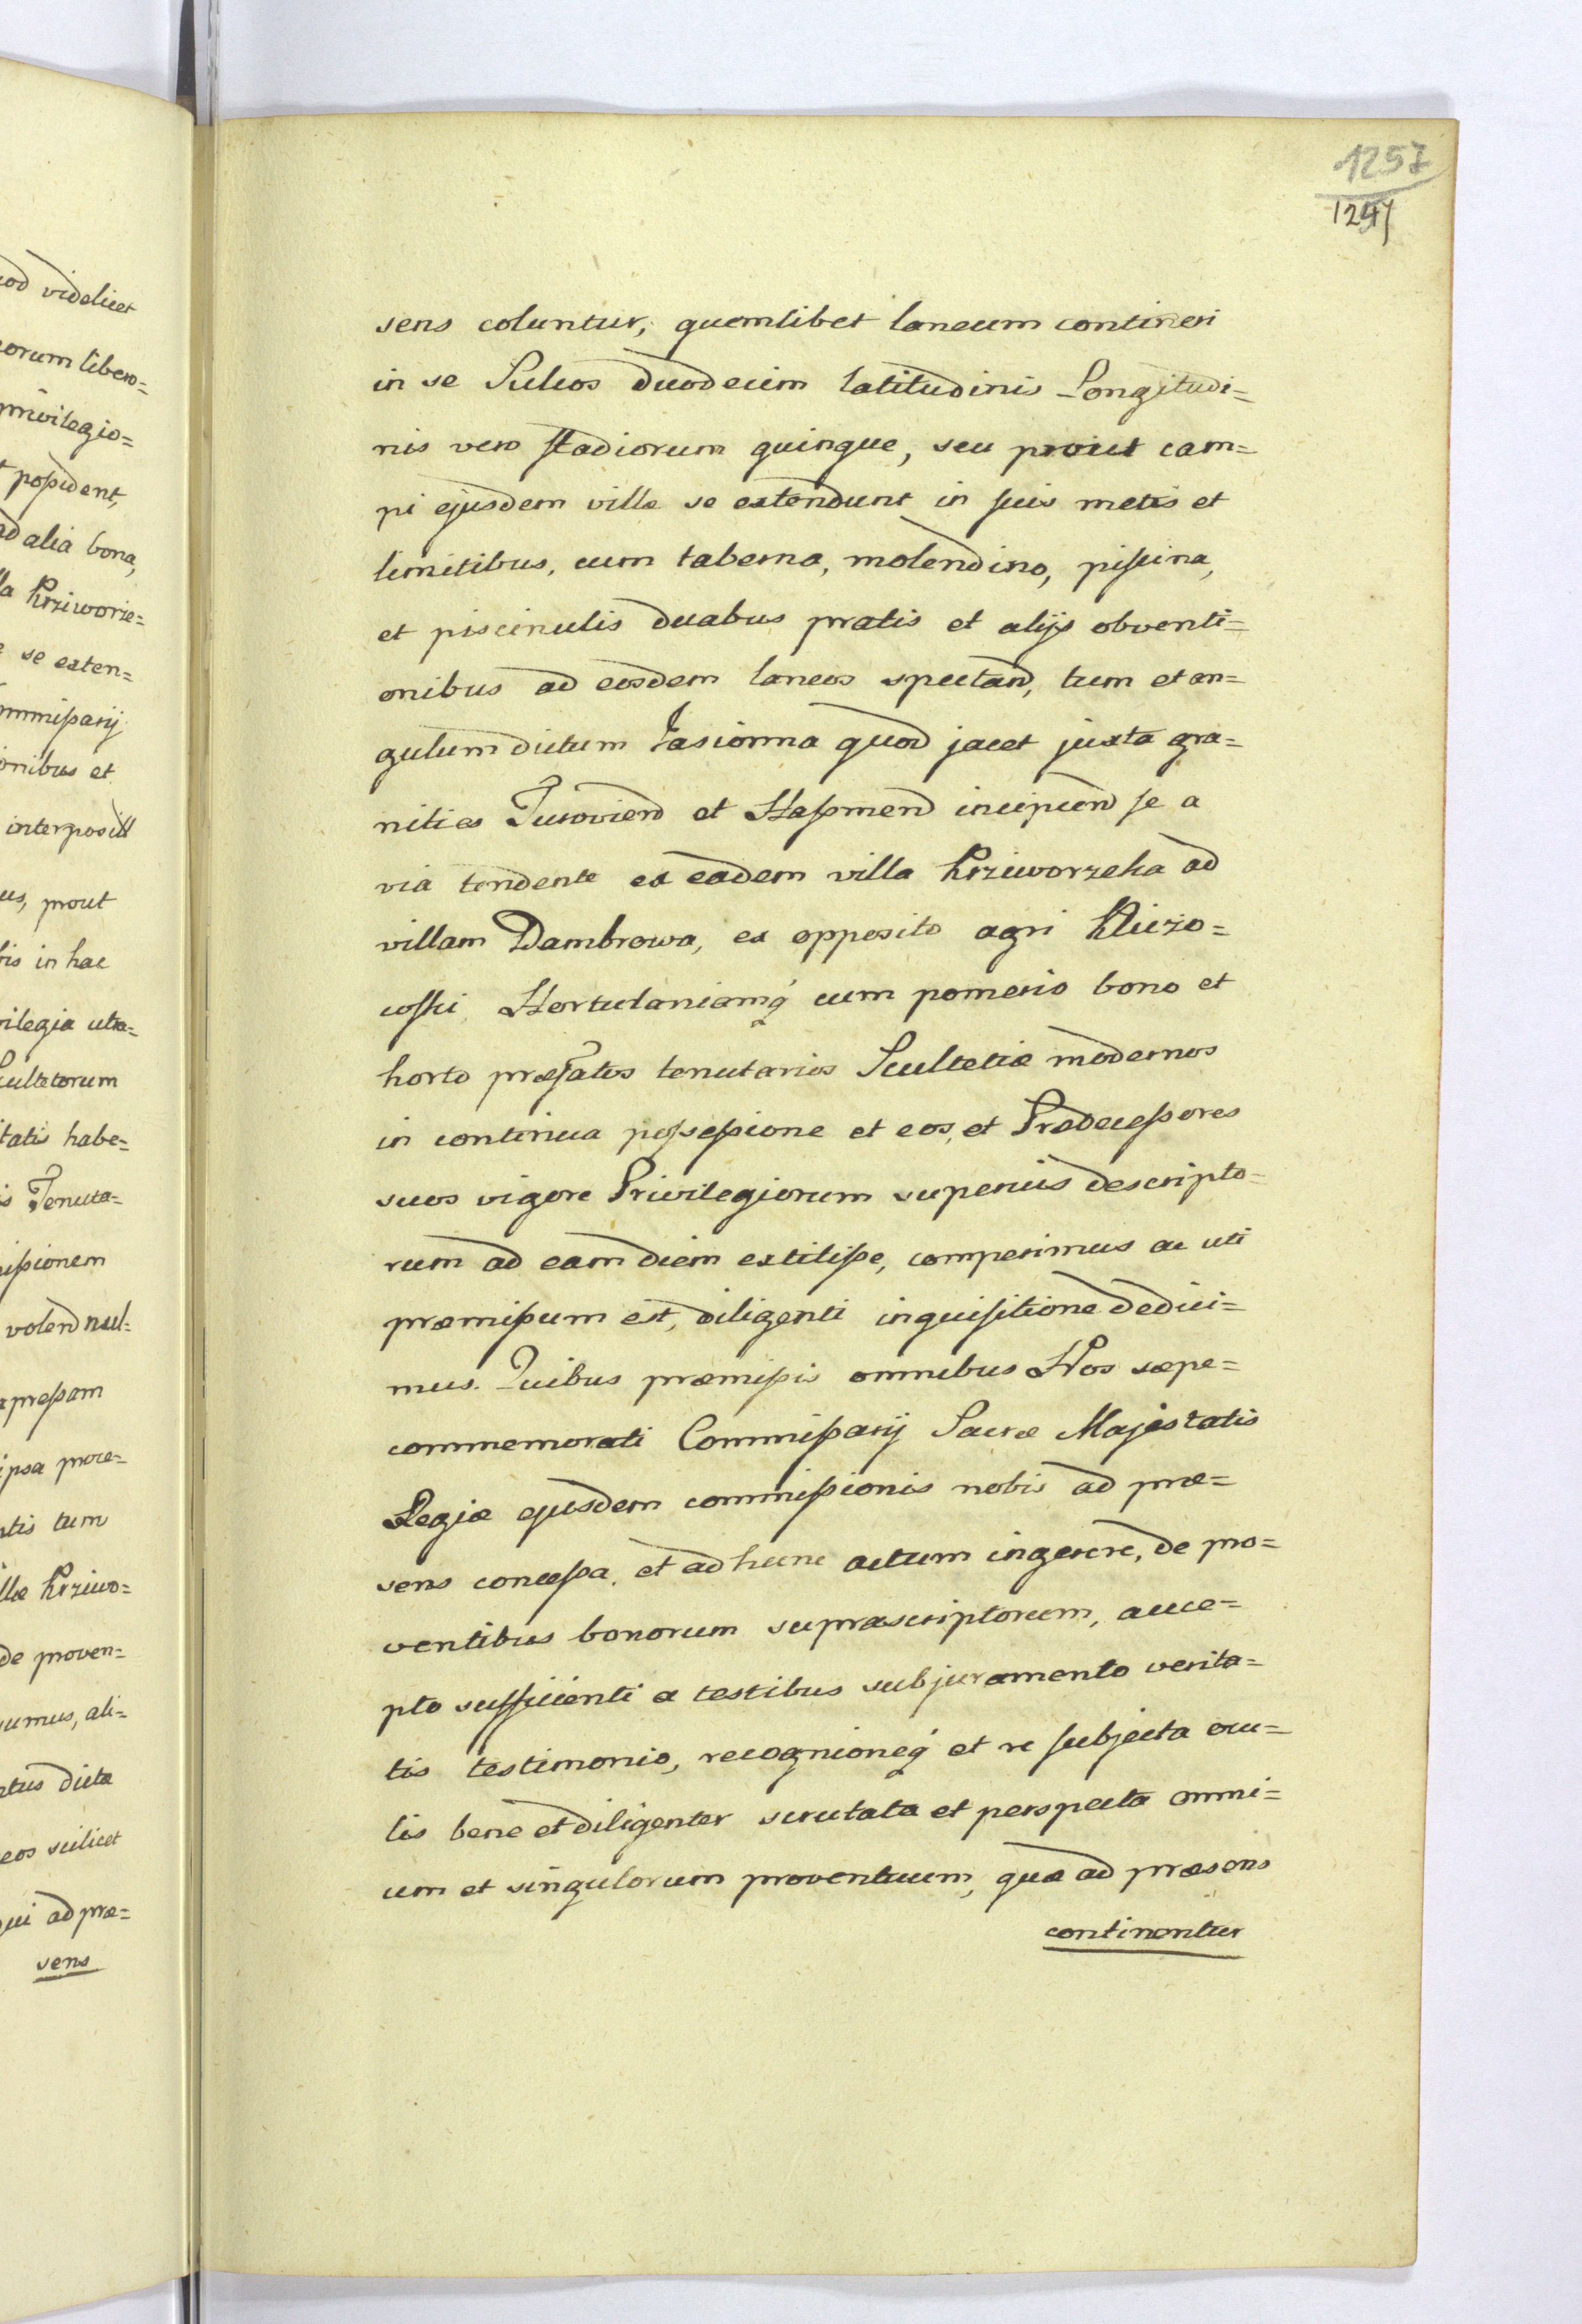 1257
1247
od videlicet
orum libero=
privilegio=
possident,
ad alia bona,
la Krziworze=
se exten=
ommissarij
onibus et
interposit
us, prout
bis in hac
vilegia utra=
cultetorum
tatis habe=
is Tenuta=
issionem
volend nul=
xpressam
ipsa prae=
ntis tum
llae Krziwo=
de proven=
sumus, ali=
ntus dicta
eos scilicet
qui ad prae=
sens
sens coluntur, quemlibet laneum contineri
in se Sulcos duodecim latitudinis Longitudi=
nis vero stadiorum quinque, seu prout cam=
pi ejusdem villae se extendunt in suis metis et
limitibus, cum taberna, molendino, piscina,
et piscinulis duabus pratis et alijs obventi=
onibus ad eosdem laneos spectand, tum et an=
gulum dictum Jasionna quod jacet juxta gra=
nities Turoviend et Hasmend incipiend se a
via tendente ex eadem villa Krziworzeka ad
villam Dambrowa, ex opposito agri Kliczo=
coski Hortulaniamq cum pomerio bono et
horto praefatos tenutarios Scultetiae modernos
in continua possessione et eos, et Praedecessores
suos vigore Privilegiorum superius descripto=
rum ad eam diem extitisse, comperimus ac uti
praemissum est, diligenti inquisitione dedici=
mus. Quibus praemissis omnibus Nos saepe=
commemorati Commissarij Sacrae Majestatis
Regiae ejusdem commissionis nobis ad prae=
sens concessa, et ad hunc actum ingerere, de pro=
ventibus bonorum suprascriptorum, acce=
pto sufficienti a testibus sub juramento verita=
tis testimonio, recognioneq et re subjecta ocu=
lis bene et diligenter scrutata et perspecta omni=
um et singulorum proventuum, quae ad praesens
continentur